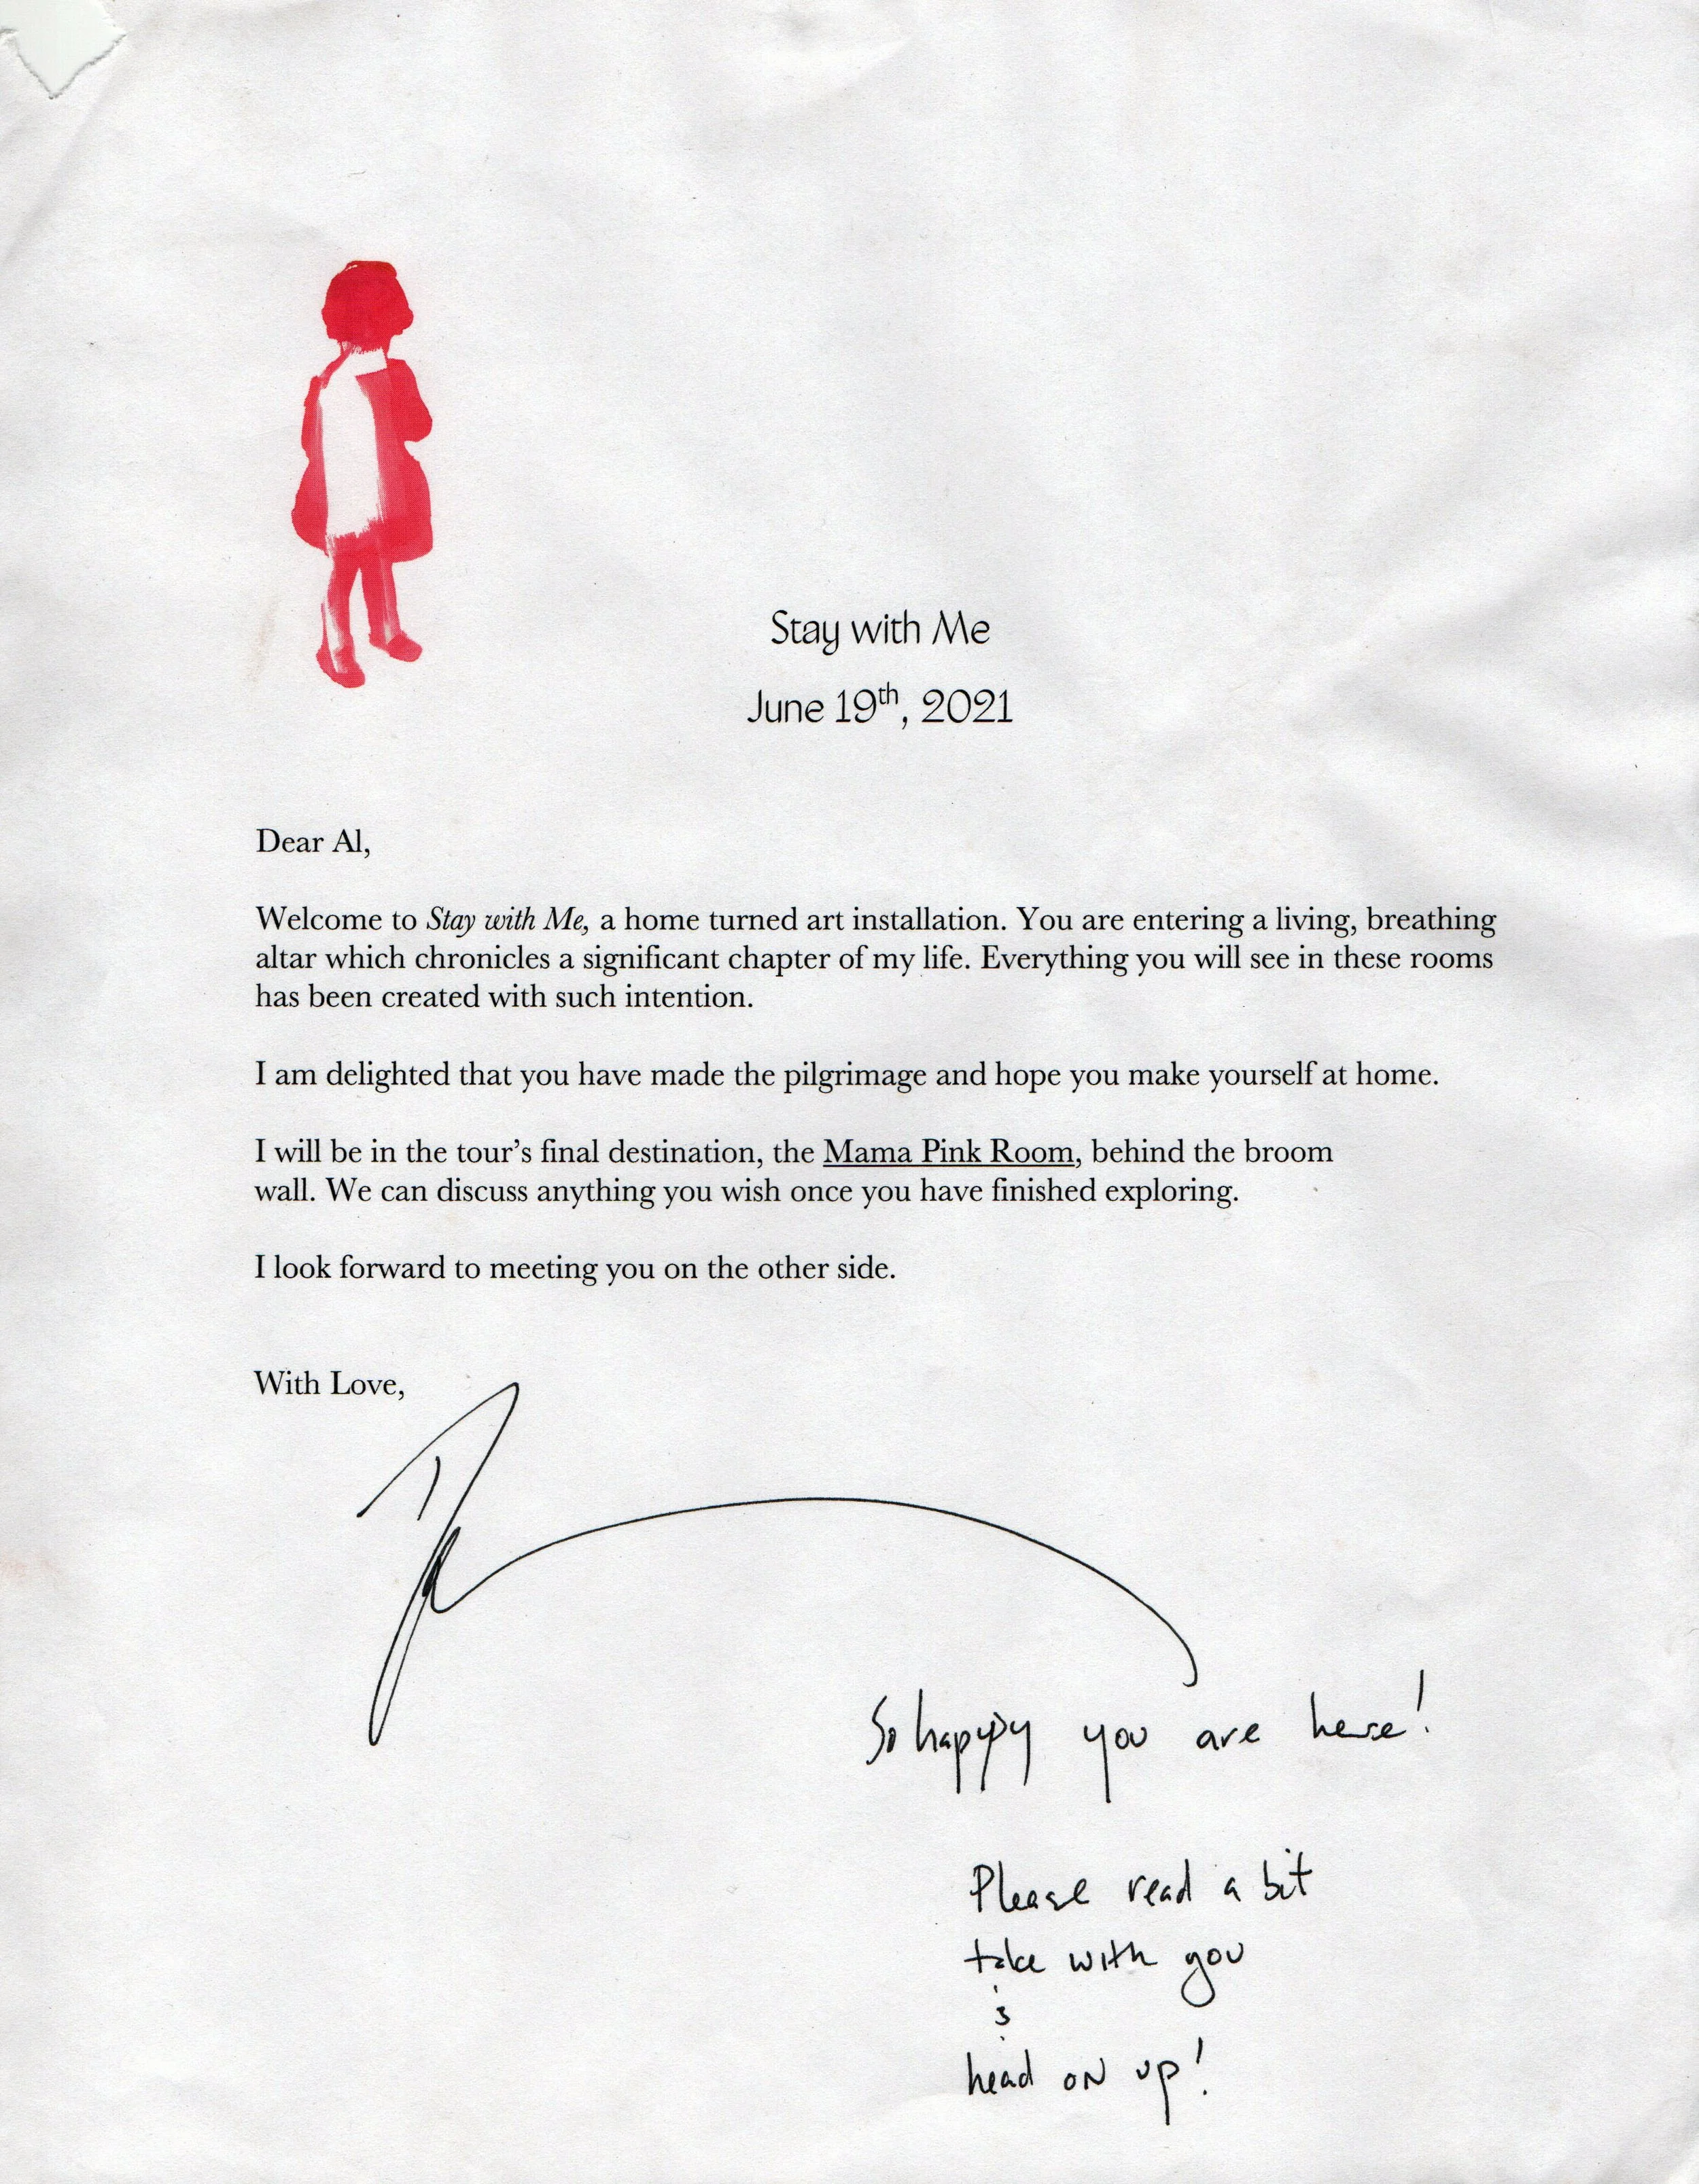 Stay with Me
June 19th, 2021
Dear Al,
Welcome to Stay with Me, a home turned art installation. You are entering a living, breathing
altar which chronicles a significant chapter of my life. Everything you will see in these rooms
has been created with such intention.
I am delighted that you have made the pilgrimage and hope you make yourself at home.
I will be in the tour’s final destination, the Mama Pink Room, behind the broom
wall. We can discuss anything you wish once you have finished exploring.
I look forward to meeting you on the other side.
With Love,
So happy you are here!
Please read a bit
take with you
&
head on up!